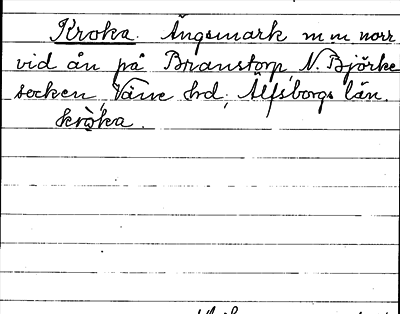 Kroka. Ängsmark m m norr
vid ån på Branstorp, N. Björke
socken, Väne hd, Älfsborgs län.
krò̭ka.